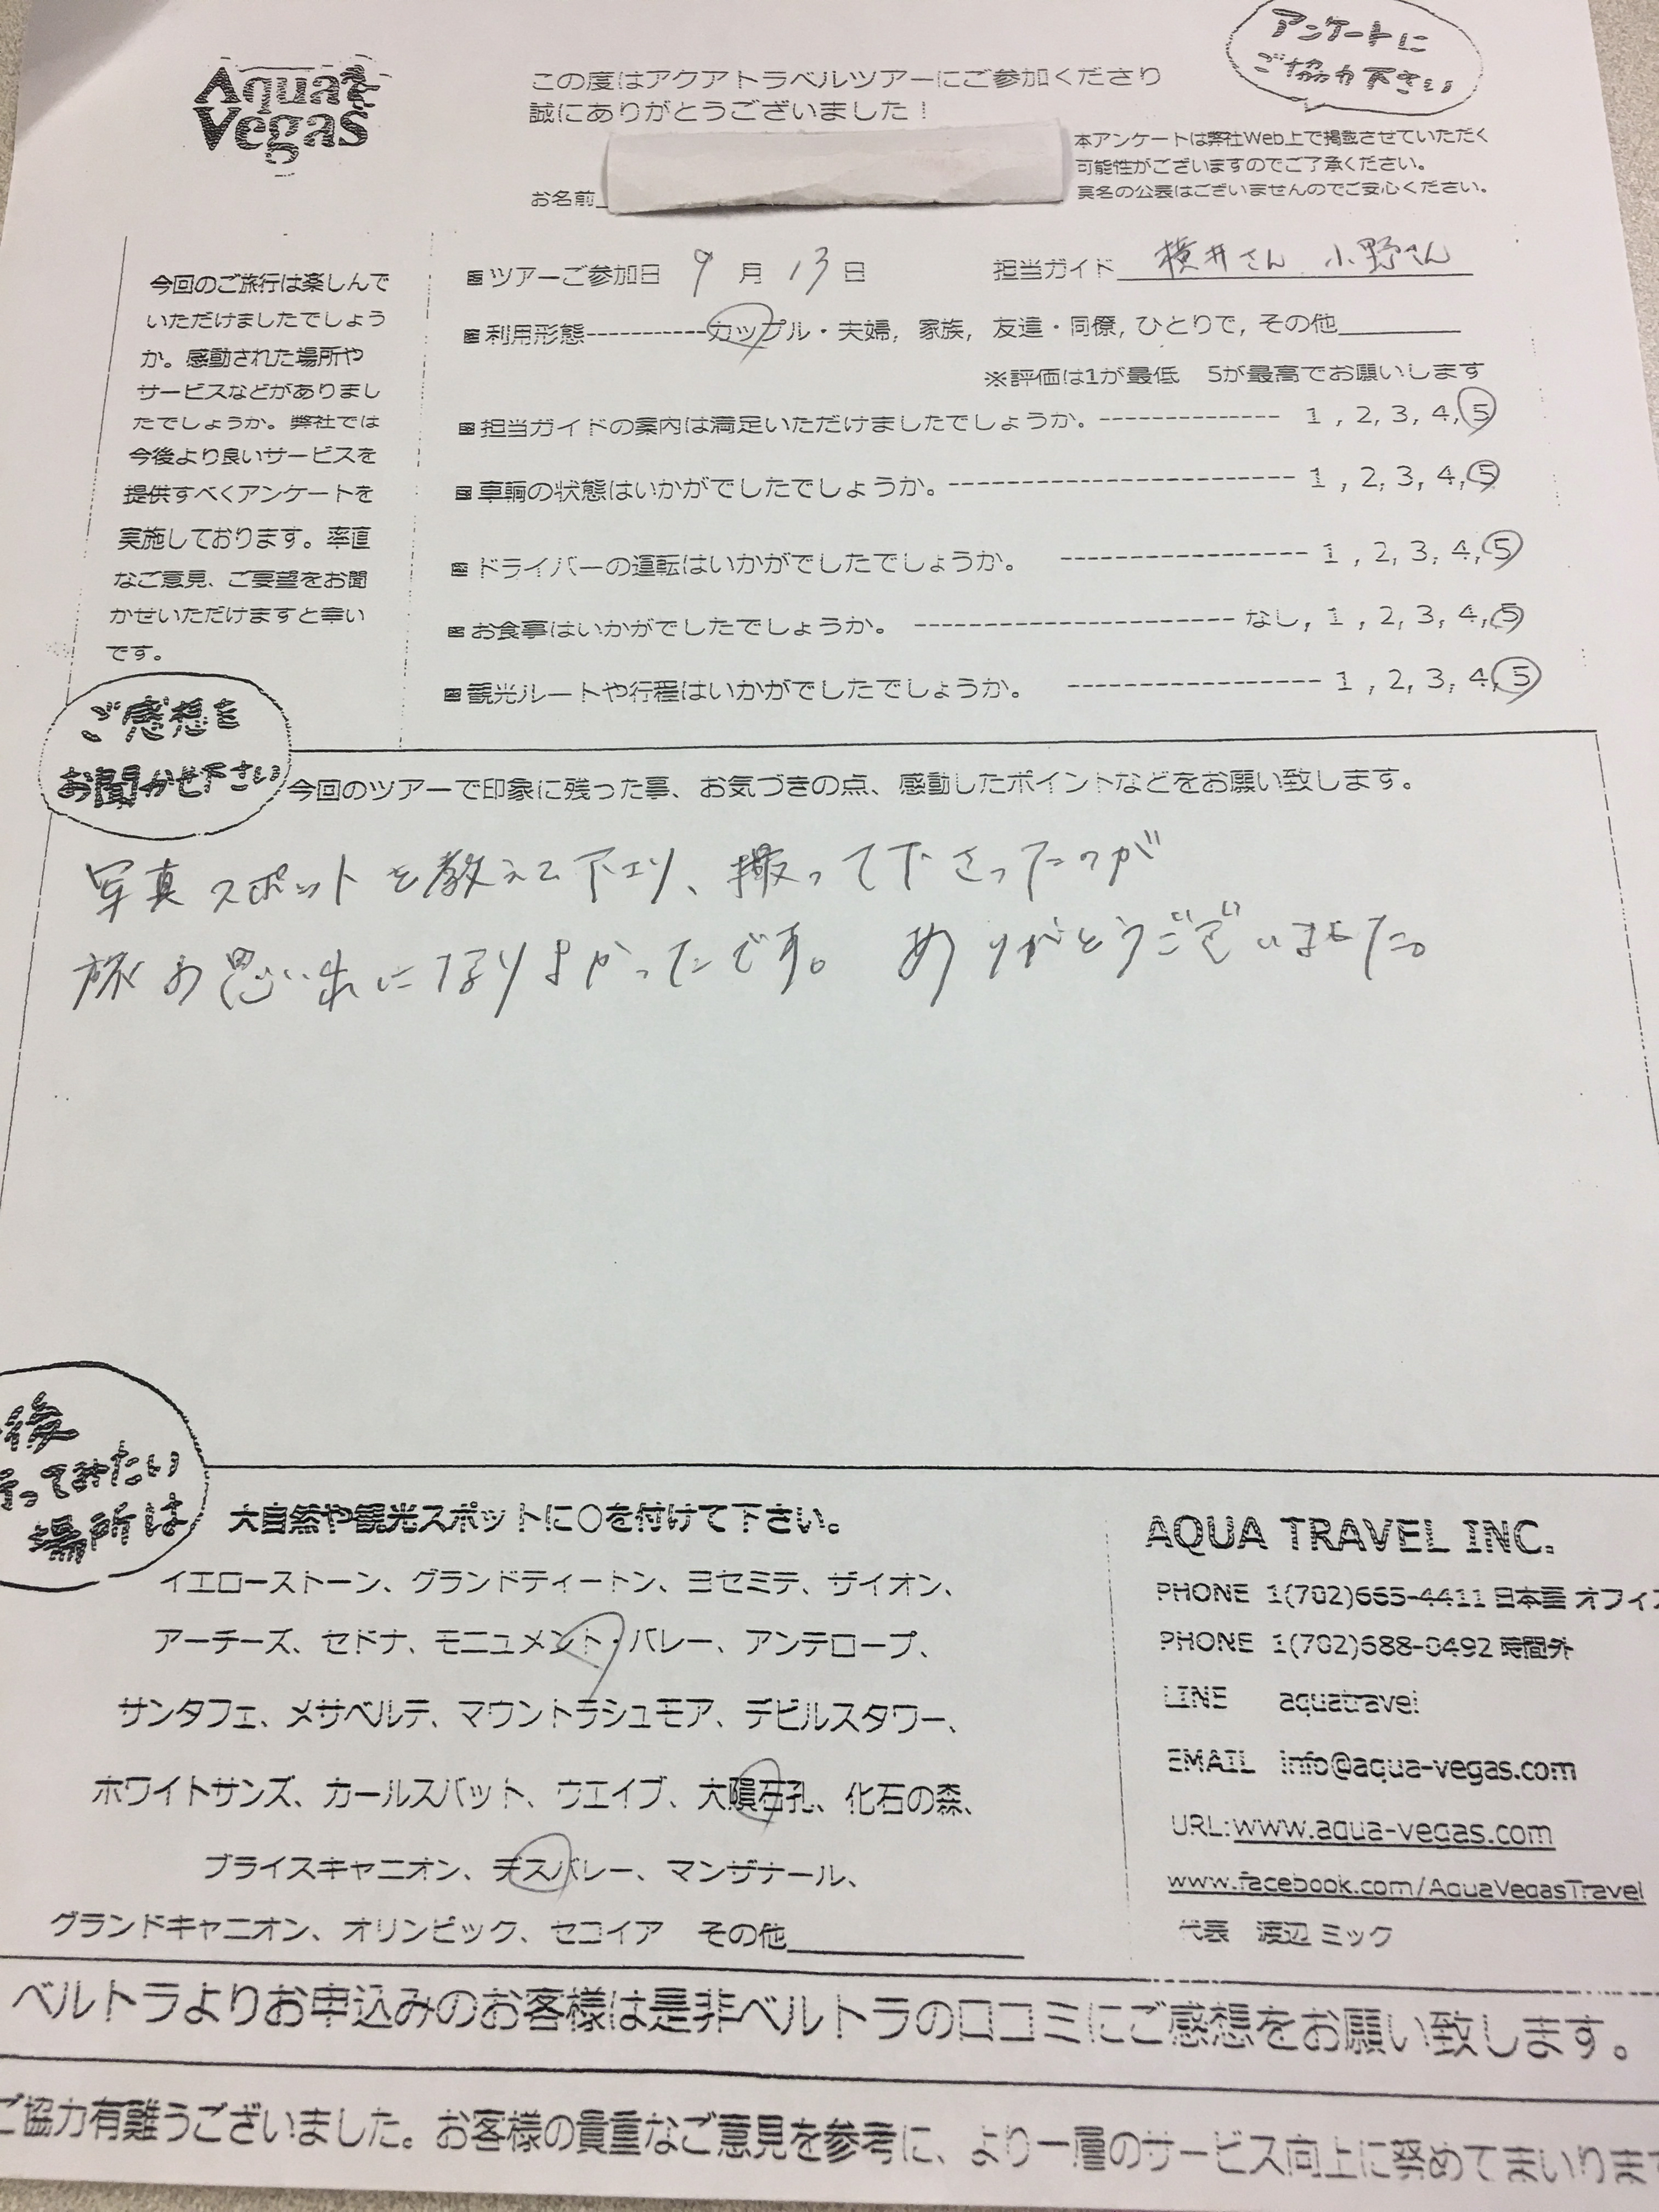 アンケートに
ご協力下さい
Aqua
Vegas
この度はアクアトラベルツアーにご参加くださり
誠にありがとうございました！
本アンケートは弊社Web上で掲載させていただく
可能性がございますのでご了承ください。
実名の公表はございませんのでご安心ください。
お名前
今回のご旅行は楽しんで
いただけましたでしょう
か。感動された場所や
サービスなどがありまし
たでしょうか。弊社では
今後より良いサービスを
提供すべくアンケートを
実施しております。率直
なご意見、ご要望をお聞
かせいただけますと幸い
です。
■ツアーご参加日 9 月 13 日 担当ガイド 横井さん 小野さん
■利用形態-----------カップル・夫婦, 家族, 友達・同僚, ひとりで, その他
※評価は1が最低 5が最高でお願いします
■担当ガイドの案内は満足いただけましたでしょうか。-------------- 1 , 2, 3, 4, 5
■車輌の状態はいかがでしたでしょうか。------------------------ 1 , 2, 3, 4, 5
■ドライバーの運転はいかがでしたでしょうか。 ----------------- 1 , 2, 3, 4, 5
■お食事はいかがでしたでしょうか。 ---------------------- なし, 1 , 2, 3, 4, 5
■観光ルートや行程はいかがでしたでしょうか。 ----------------- 1 , 2, 3, 4, 5
ご感想を
お聞かせ下さい
今回のツアーで印象に残った事、お気づきの点、感動したポイントなどをお願い致します。
写真スポットを教えて下さり、撮って下さったのが
旅の思い出になりよかったです。 ありがとうございました。
後
行ってみたい
場所は
大自然や観光スポットに○を付けて下さい。
イエローストーン、グランドティートン、ヨセミテ、ザイオン、
アーチーズ、セドナ、モニュメント・バレー、アンテロープ、
サンタフェ、メサベルデ、マウントラシュモア、デビルスタワー、
ホワイトサンズ、カールスバット、ウエイブ、大隕石孔、化石の森、
ブライスキャニオン、デスバレー、マンザナール、
グランドキャニオン、オリンピック、セコイア その他
AQUA TRAVEL INC.
PHONE 1(702)665-4411 日本語 オフィス
PHONE 1(702)688-0492 時間外
LINE aquatravel
EMAIL info@aqua-vegas.com
URL:www.aqua-vegas.com
www.facebook.com/AquaVegasTravel
代表 渡辺 ミック
ベルトラよりお申込みのお客様は是非ベルトラの口コミにご感想をお願い致します。
ご協力有難うございました。お客様の貴重なご意見を参考に、より一層のサービス向上に努めてまいります